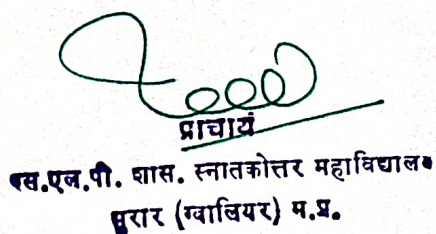 प्राचार्य
एस.एल.पी. शास. स्नातकोत्तर महाविद्यालय
मुरार (ग्वालियर) म.प्र.